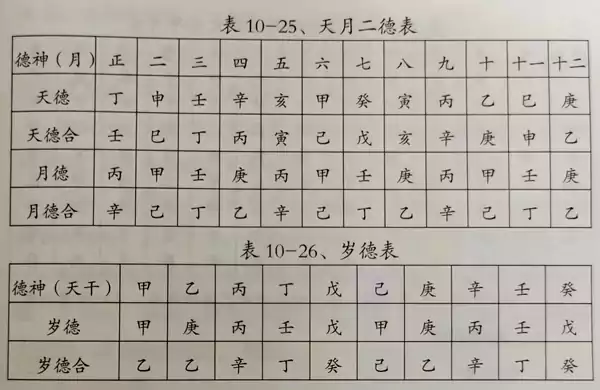 表 10-25、天月二德表
德神（月） 正 二 三 四 五 六 七 八 九 十 十一 十二
天德 丁 申 壬 辛 亥 甲 癸 寅 丙 乙 巳 庚
天德合 壬 巳 丁 丙 寅 己 戊 亥 辛 庚 申 乙
月德 丙 甲 壬 庚 丙 甲 壬 庚 丙 甲 壬 庚
月德合 辛 己 丁 乙 辛 己 丁 乙 辛 己 丁 乙
表 10-26、岁德表
德神（天干） 甲 乙 丙 丁 戊 己 庚 辛 壬 癸
岁德 甲 庚 丙 壬 戊 甲 庚 丙 壬 戊
岁德合 乙 乙 辛 丁 癸 己 乙 辛 丁 癸